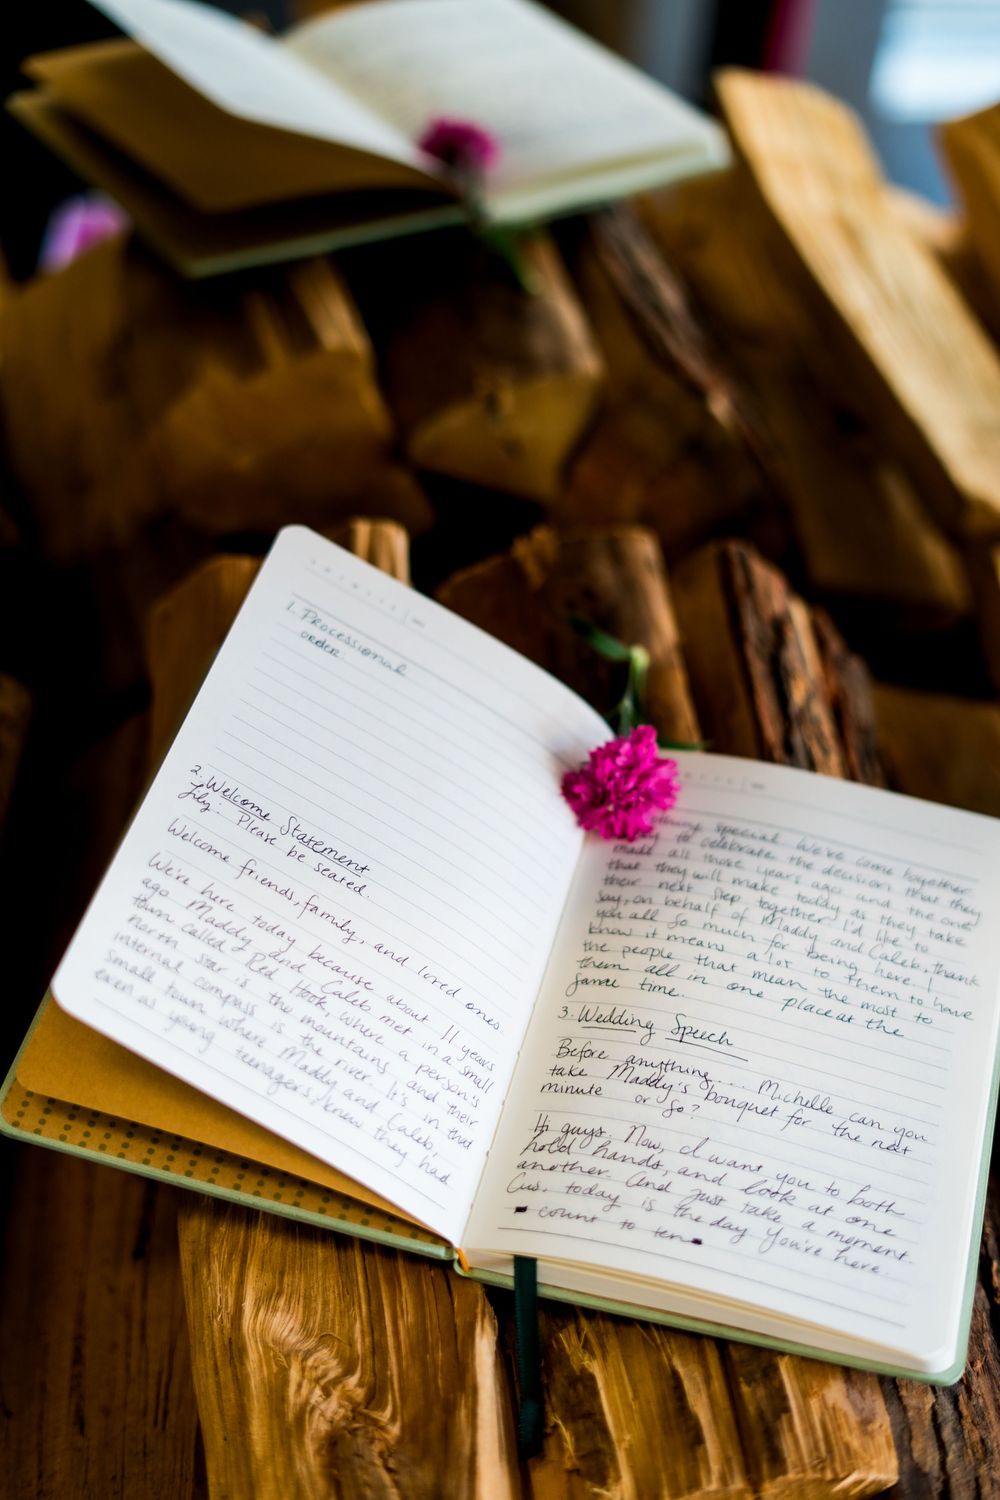 1. Processional
order.
2. Welcome Statement
Lily: Please be seated.
Welcome friends, family, and loved ones
We're here today because about 11 years
ago Maddy and Caleb met in a small
town called Red Hook, where a person's
north star is the mountains, and their
internal compass is the river. It's in that
small town where Maddy and Caleb,
even as young teenagers, knew they had
special. We've come together
to celebrate the decision that they
made all those years ago and the one
that they will make today as they take
their next step together. I'd like to
say, on behalf of Maddy and Caleb, thank
you all so much for being here. I
know it means a lot to them to have
the people that mean the most to
them all in one place at the
same time.
3. Wedding Speech
Before anything.... Michelle can you
take Maddy's bouquet for the next
minute or so?
Hi guys. Now, I want you to both
hold hands, and look at one
another. And just take a moment.
Cus, today is the day you're here.
count to ten